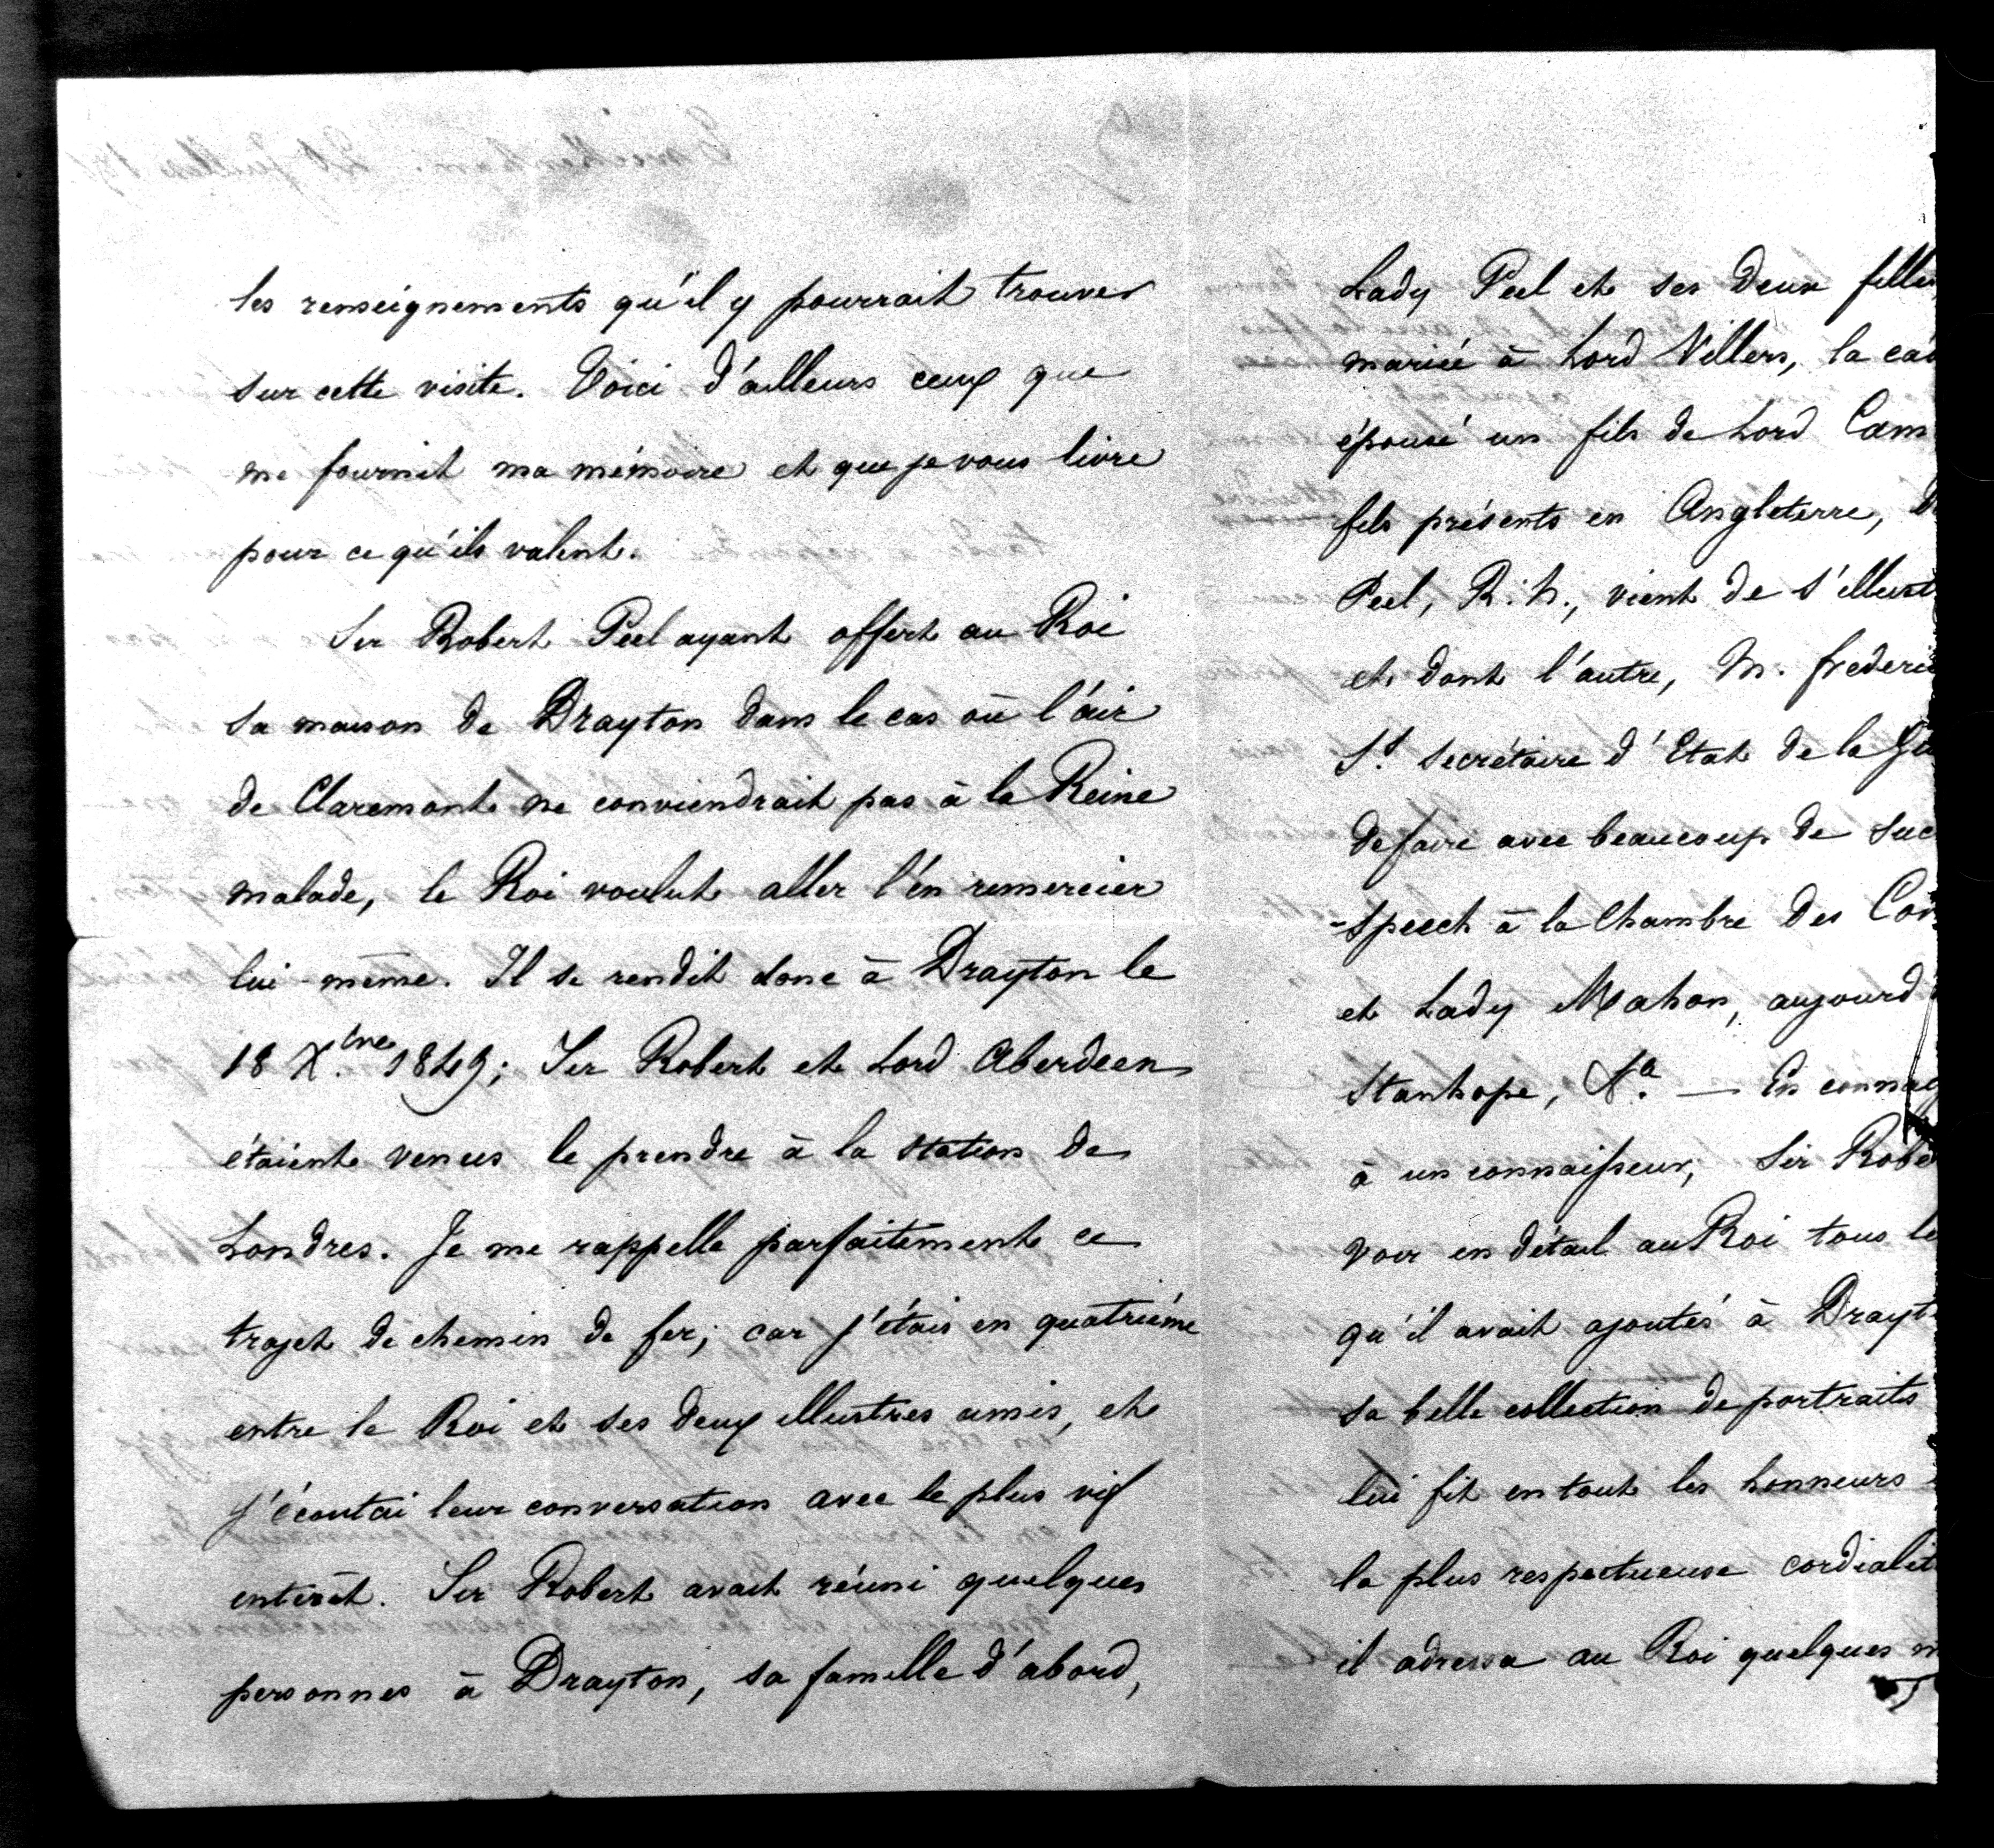 les renseignements qu'il y pourrait trouver
sur cette visite. Voici d'ailleurs ceux que
me fournit ma mémoire et que je vous livre
pour ce qu'ils valent.
Sir Robert Peel ayant offert au Roi
sa maison de Drayton dans le cas où l'air
de Claremont ne conviendrait pas à la Reine
malade, le Roi voulut aller l'en remercier
lui-même. Il se rendit donc à Drayton le
18 Xbre 1849; Sir Robert et Lord Aberdeen
étaient venus le prendre à la station de
Londres. Je me rappelle parfaitement ce
trajet de chemin de fer; car j'étais en quatrième
entre le Roi et ses deux illustres amis, et
j'écoutai leur conversation avec le plus vif
intérêt. Sir Robert avait réuni quelques
personnes à Drayton, sa famille d'abord,
Lady Peel et ses deux filles
mariée à Lord Villers, la cad
épousé un fils de Lord Cam
fils présents en Angleterre, d
Peel, R. N., vient de s'illust
et dont l'autre, M. frederic
St. secrétaire d'Etat de la Gu
de faire avec beaucoup de suc
-speech à la Chambre des Com
et Lady Mahon, aujourd'
Stanhope, &a. — En connai
à un connaisseur, Sir Robe
voir en détail au Roi tous le
qu'il avait ajoutés à Drayt
sa belle collection de portraits
lui fit en tout les honneurs
la plus respectueuse cordialit
il adressa au Roi quelques m